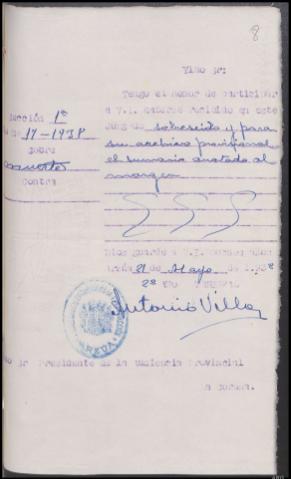 8
Ylmo Sr:
Tengo el honor de participar
a V.I. haberse recibido en este
Juzgado sobreseido y para
su archivo provisional
el sumario anotado al
margen
Sección 1ª
nº 17-1938
sobre
contra
Dios guarde a V.I. muchos años
21 de Mayo de 193
Antonio Villa
Sr Presidente de la Audiencia Provincial